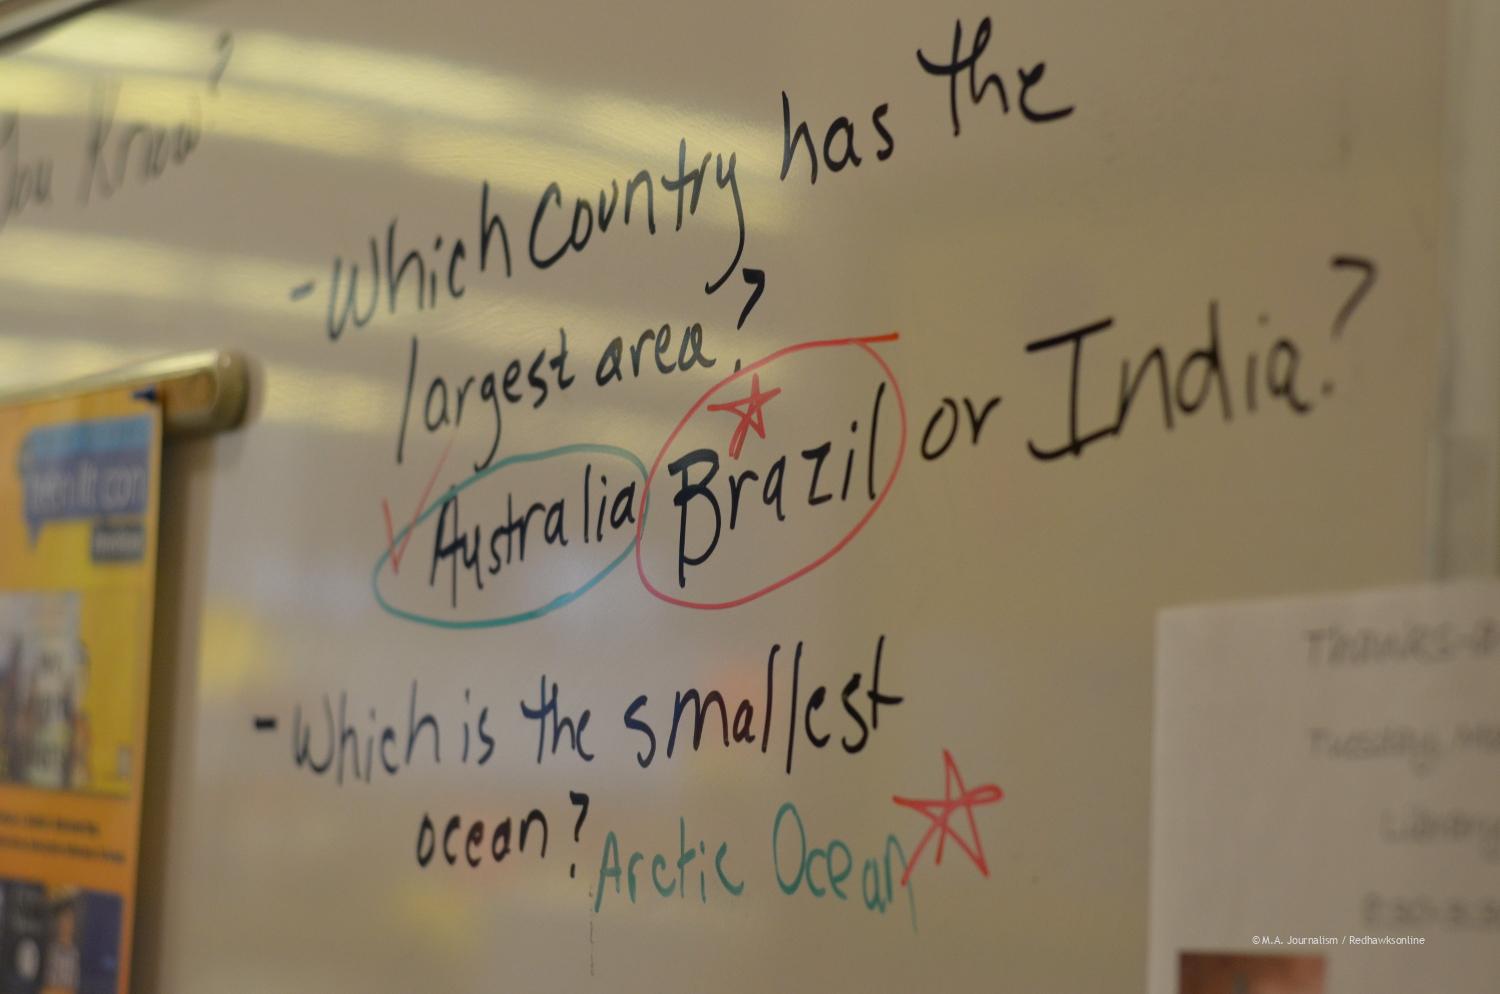 You Know?
-Which Country has the
largest area?
Australia Brazil or India?
-Which is the smallest
ocean? Arctic Ocean
Thanks-
Tuesday,
Library
©M.A. Journalism / Redhawksonline